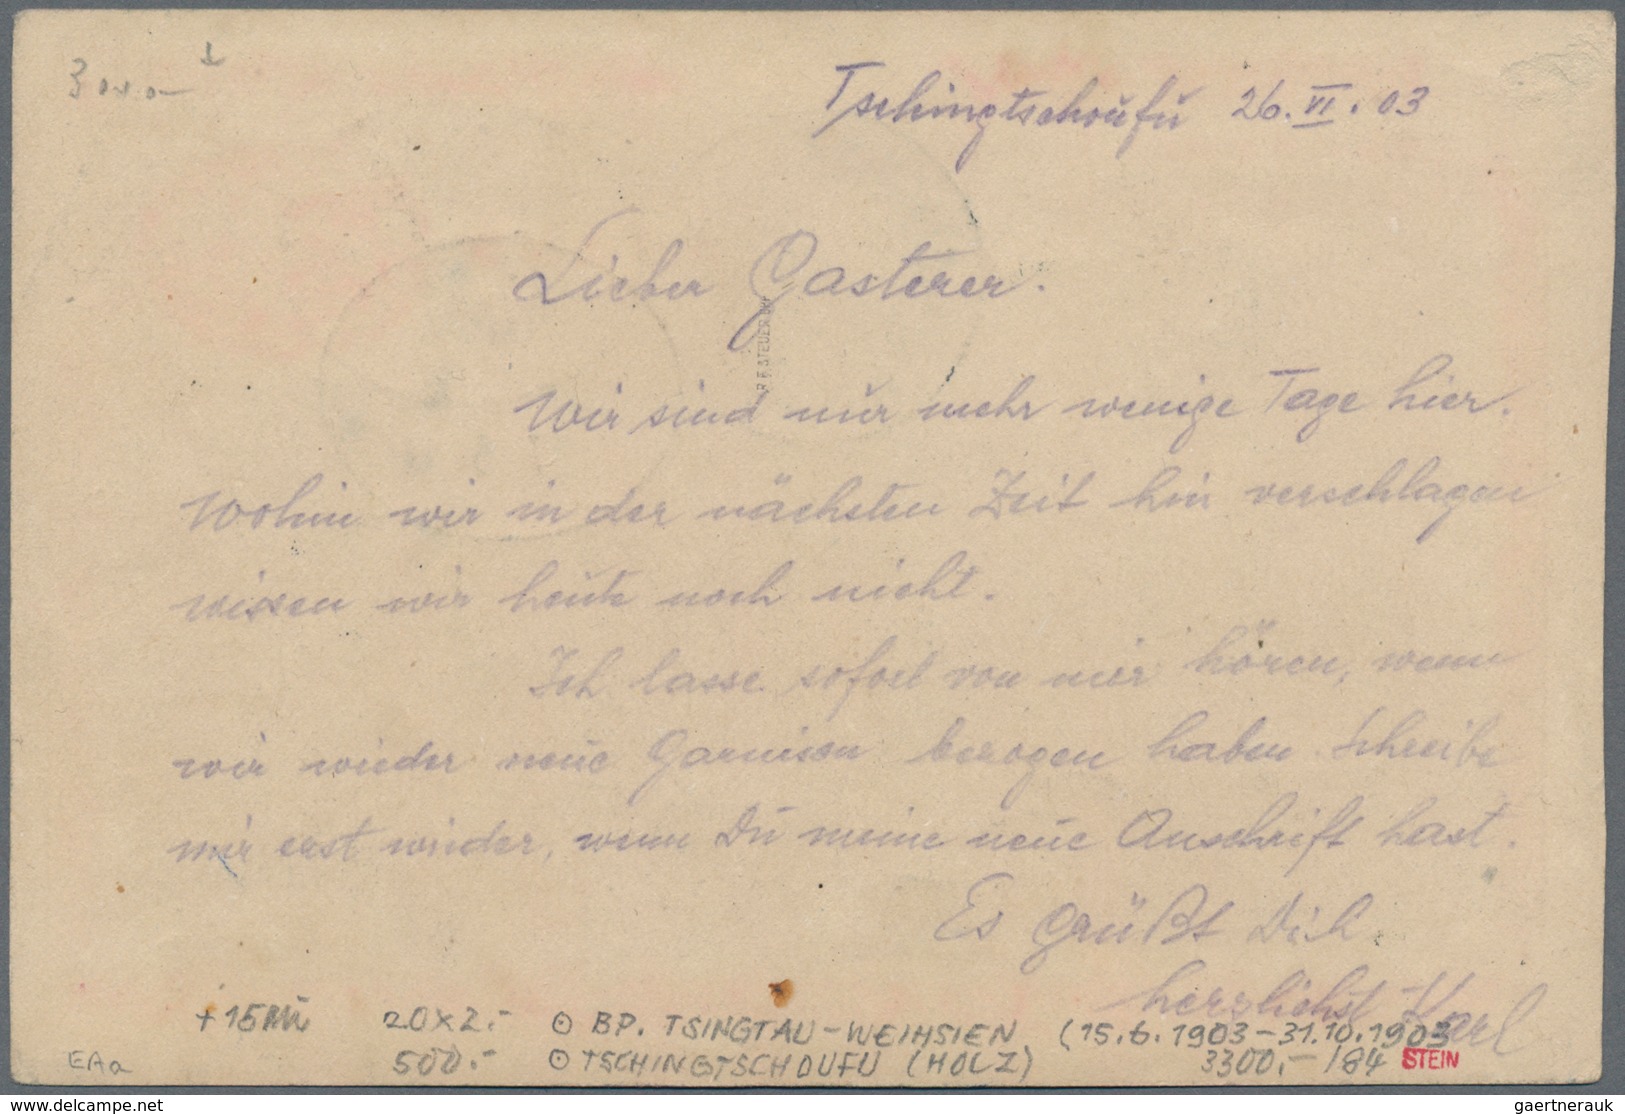 Tschingtschoufu 26. VI. 03
Lieber Gasterer.
Wir sind nur mehr wenige Tage hier.
Wohin wir in der nächsten Zeit hin verschlagen
wissen wir heute noch nicht.
Ich lasse sofort von mir hören, wenn
wir wieder neue Garnison bezogen haben. Schreibe
mir erst wieder, wenn Du meine neue Anschrift hast.
Es grüßt Dich
herzlichst Karl
STEUER
+ 15 20x2.- ⊙ BP. TSINGTAU-WEIHSIEN (15.6.1903-31.10.1903
EAa 500.- ⊙ TSCHINGTSCHOUFU (HOLZ) 3300,-/84 STEIN
www.delcampe.net gaertnerauk